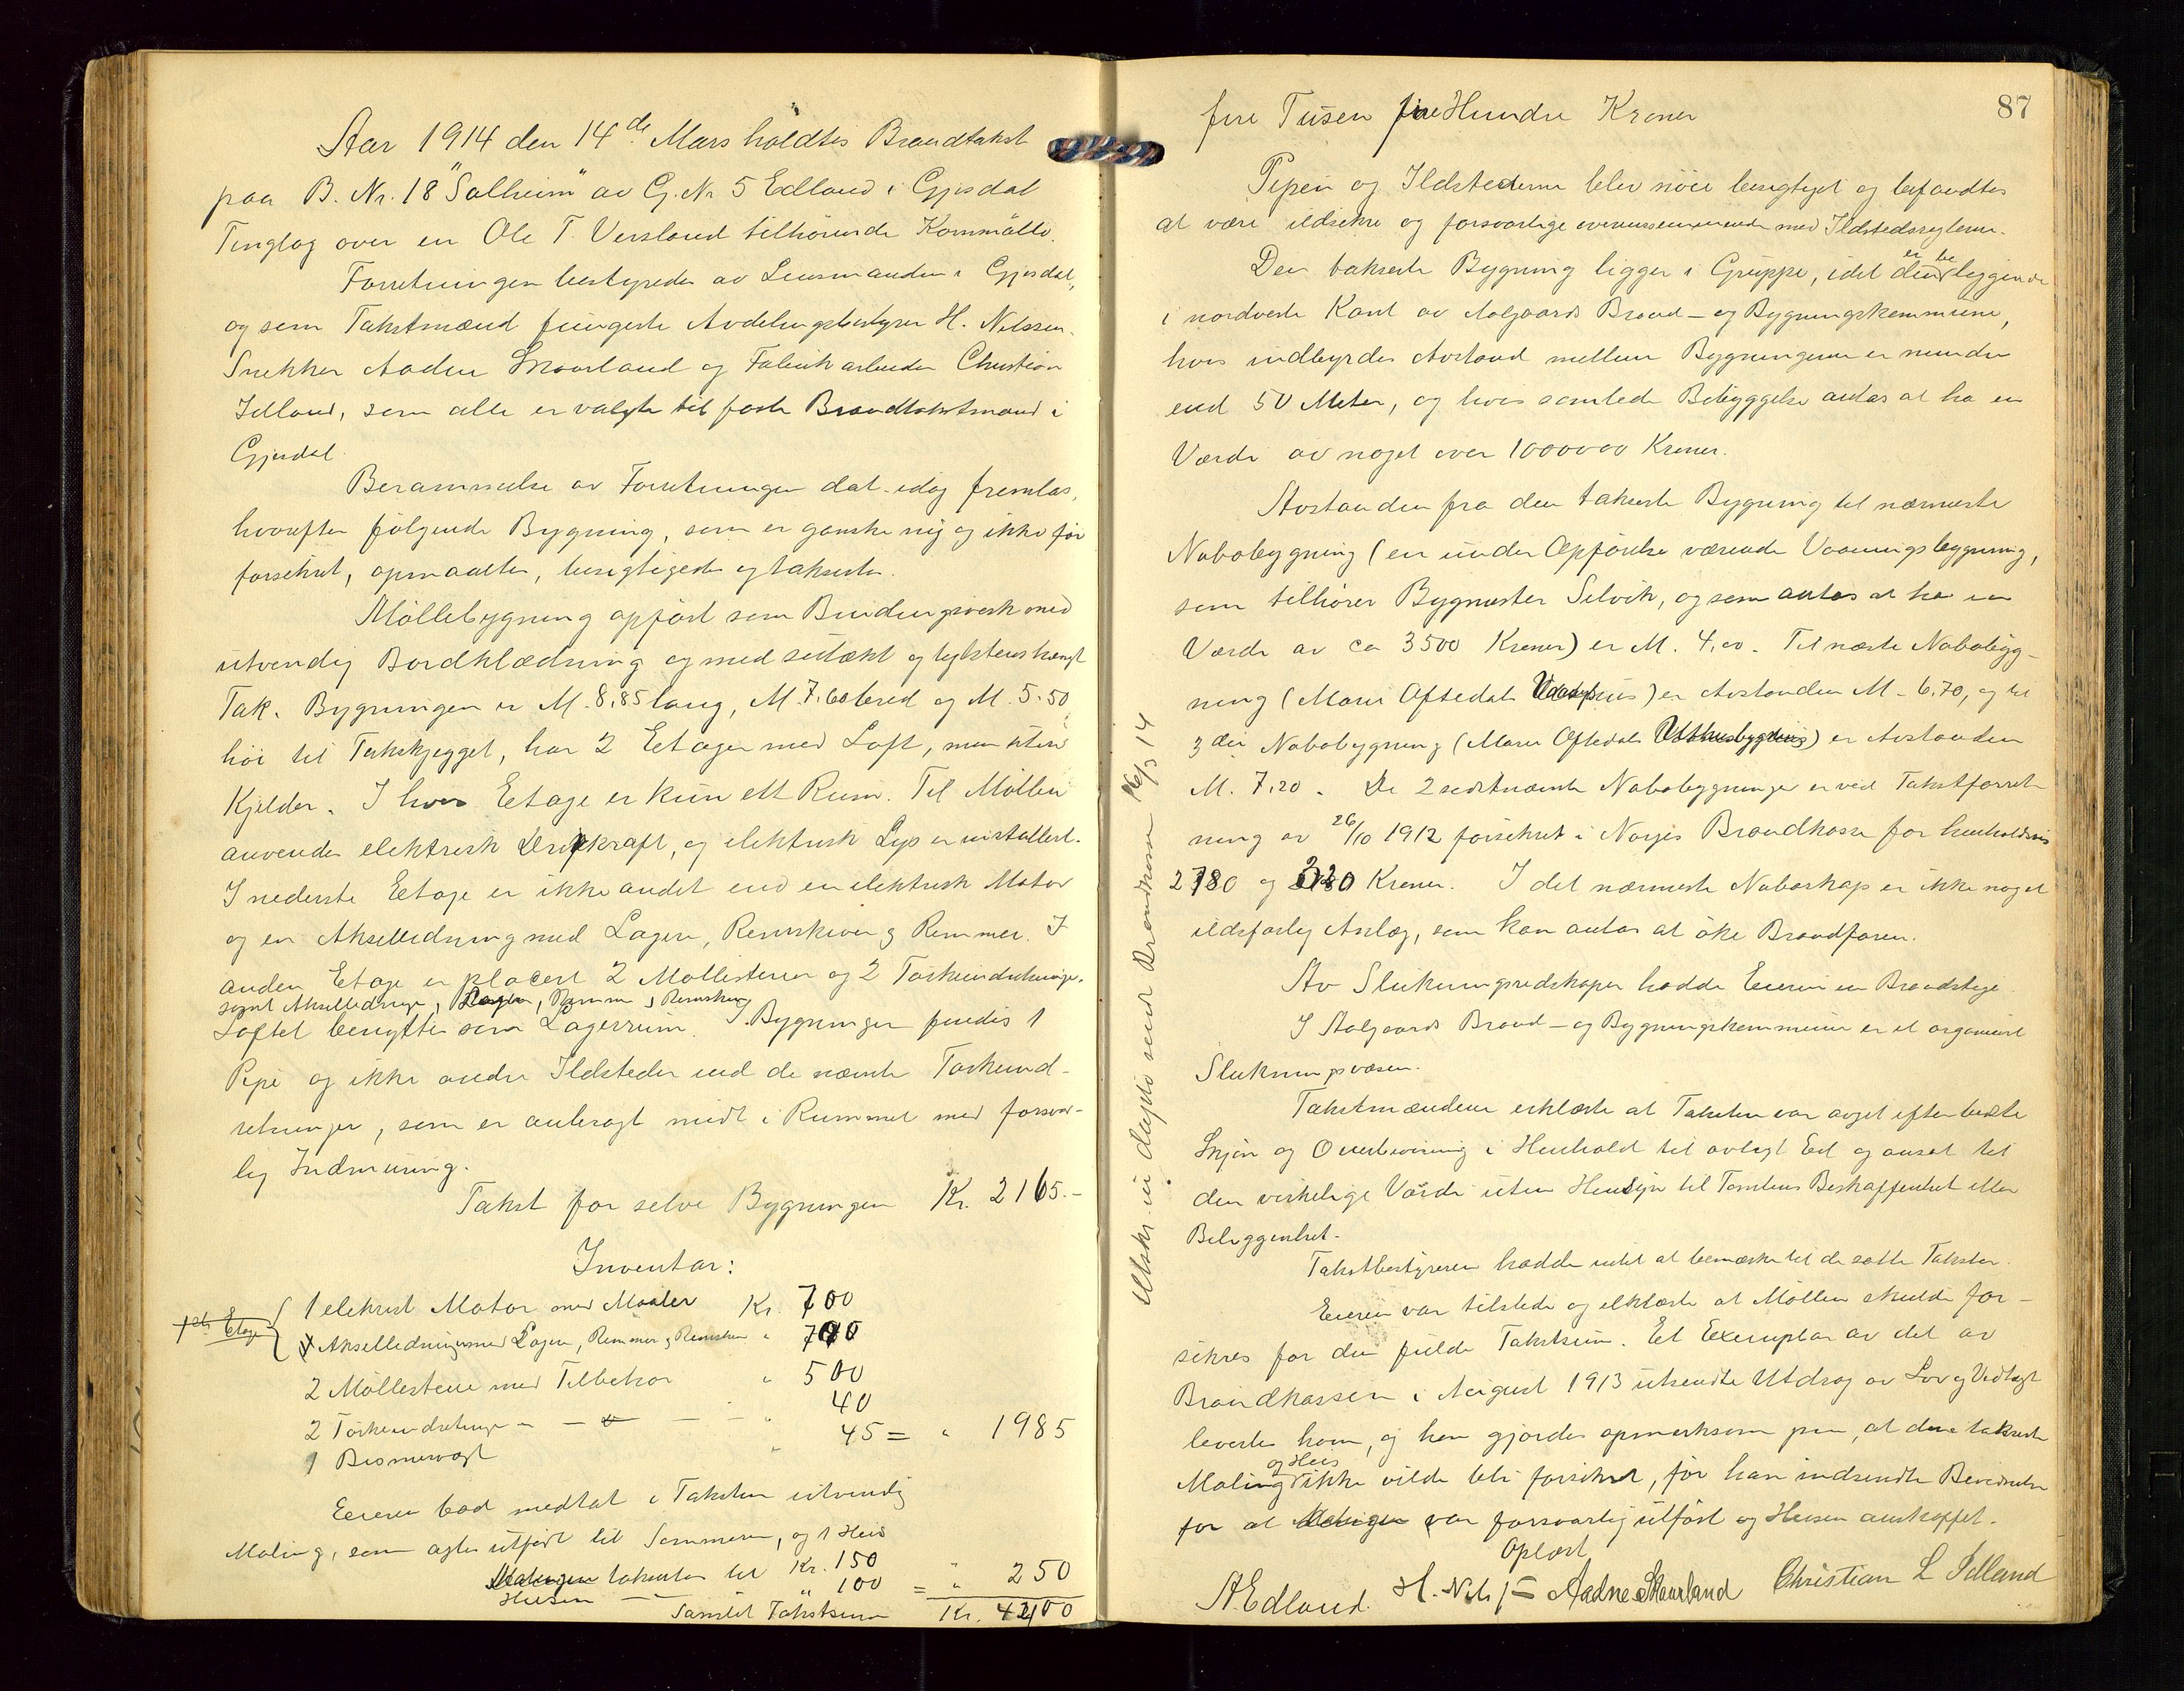 Aar 1914 den 14de Mars holdtes Brandtakst
paa B. Nr. 18 "Solheim" av G. Nr. 5 Edland i Gjesdal
Tinglag over en Ole T. Versland tilhørende Kornmølle.
Forretningen bestyredes av Lensmanden i Gjesdal,
og som Takstmænd fungerte Avdelingsbestyrer H. Nilssen,
Snekker Aadne Skaarland og Fabrikarbeider Christian
Idland, som alle er valgte til faste Brandtakstmænd i
Gjesdal.
Berammelse av Forretningen dat. idag fremlas,
hvorefter følgende Bygning, som er ganske ny og ikke før
forsikret, opmaaltes, besigtigedes og takserte.
Møllebygning opført som Bindingsverk med
utvendig Bordklædning og med sutækt og teglstenshængt
Tak. Bygningen er M. 8,85 lang, M. 7,60 bred og M. 5,50
høi til Takskjegget, har 2 Etager med Loft, men uten
Kjelder. I hver Etage er kun ett Rum. Til Møllen
anvendes elektrisk Drivkraft, og elektrisk Lys er installert.
I nederste Etage er ikke andet end en elektrisk Motor
og en Akselledning med Lagere, Remskiver og Remmer. I
anden Etage er placert 2 Møllestener og 2 Tørkeindretninger,
samt Akselledninger, Lagere, Remmer og Remskiver
Loftet benyttes som Lagerrum. I Bygningen findes 1
Pipe og ikke andre Ildsteder end de nævnte Tørkeind-
retninger, som er anbragt midt i Rummet med forsvar-
lig Indmuring.
Takst for selve Bygningen Kr. 2165.-
Inventar:
1ste Etage { 1 elektrisk Motor med Maaler Kr. 700
Akselledninger med Lagere, Remmer og Remskiver " 700
2 Møllestene med Tilbehør " 500
2 Tørkeindretninger - - - - " 40
1 Bismervægt " 45 = " 1985
Eieren bad medtat i Taksten utvendig
Maling, som agtes utført til Sommeren, og 1 Heis
Malingen taksertes til Kr. 150
Heisen - - " 100 = " 250
Samlet Takstsum Kr. 4400
87
fire Tusen fire Hundre Kroner
Pipen og Ildstederne blev nøie besigtiget og befandtes
at være ildsikre og forsvarlige overensstemmende med Ildstedsreglerne.
Den takserte Bygning ligger i Gruppe, idet den er beliggende
i nordvestre Kant av Aalgaards Brand- og Bygningskommune,
hvis indbyrdes Avstand mellem Bygningerne er mindre
end 50 Meter, og hvis samlede Bebyggelse antas at ha en
Værdi av noget over 1000000 Kroner.
Avstanden fra den takserte Bygning til nærmeste
Nabobygning (en under Opførelse værende Vaaningsbygning,
som tilhører Bygmester Selvik, og som antas at ha en
Værdi av ca 3500 Kroner) er M. 4,00. Til næste Nabobygg-
ning (Maria Oftedals Vaaningshus) er Avstanden M. 6,70, og til
3die Nabobygning (Maria Oftedals Uthusbygning) er Avstanden
M. 7,20. De 2 sidstnævnte Nabobygninger er ved Takstforret-
ning av 26/10 1912 forsikret i Norges Brandkasse for henholdsvis
2780 og 320 Kroner. I det nærmeste Naboskap er ikke noget
ildsfarlig Anlæg, som kan antas at øke Brandfaren.
Av Slukningsredskaper hadde Eieren en Brandstige.
I Aalgaards Brand- og Bygningskommune er et organisert
Slukningsvæsen.
Takstmændene erklærte at Taksten var avgit efter bedste
Skjøn og Overbevisning i Henhold til avlagt Ed og ansat til
den virkelige Værdi uten Hensyn til Tomtens Beskaffenhet eller
Beliggenhet.
Takstbestyreren hadde intet at bemærke til de satte Takster.
Eieren var tilstede og erklærte at Møllen skulde for-
sikres for den fulde Takstsum. Et Exemplar av det av
Brandkassen i August 1913 utsendte Utdrag av Lov og Vedtægt
levertes ham, og han gjordes opmerksom paa, at den takserte
Maling og Heis ikke vilde bli forsikret, før han indsendte Bevidnelse
for at Malingen var forsvarlig utført og Heisen anskaffet.
Oplæst
A. Edland. H. Nilssen Aadne Skaarland Christian L Idland
Utskr. in duplo sendt Brandkassen 16/3 14